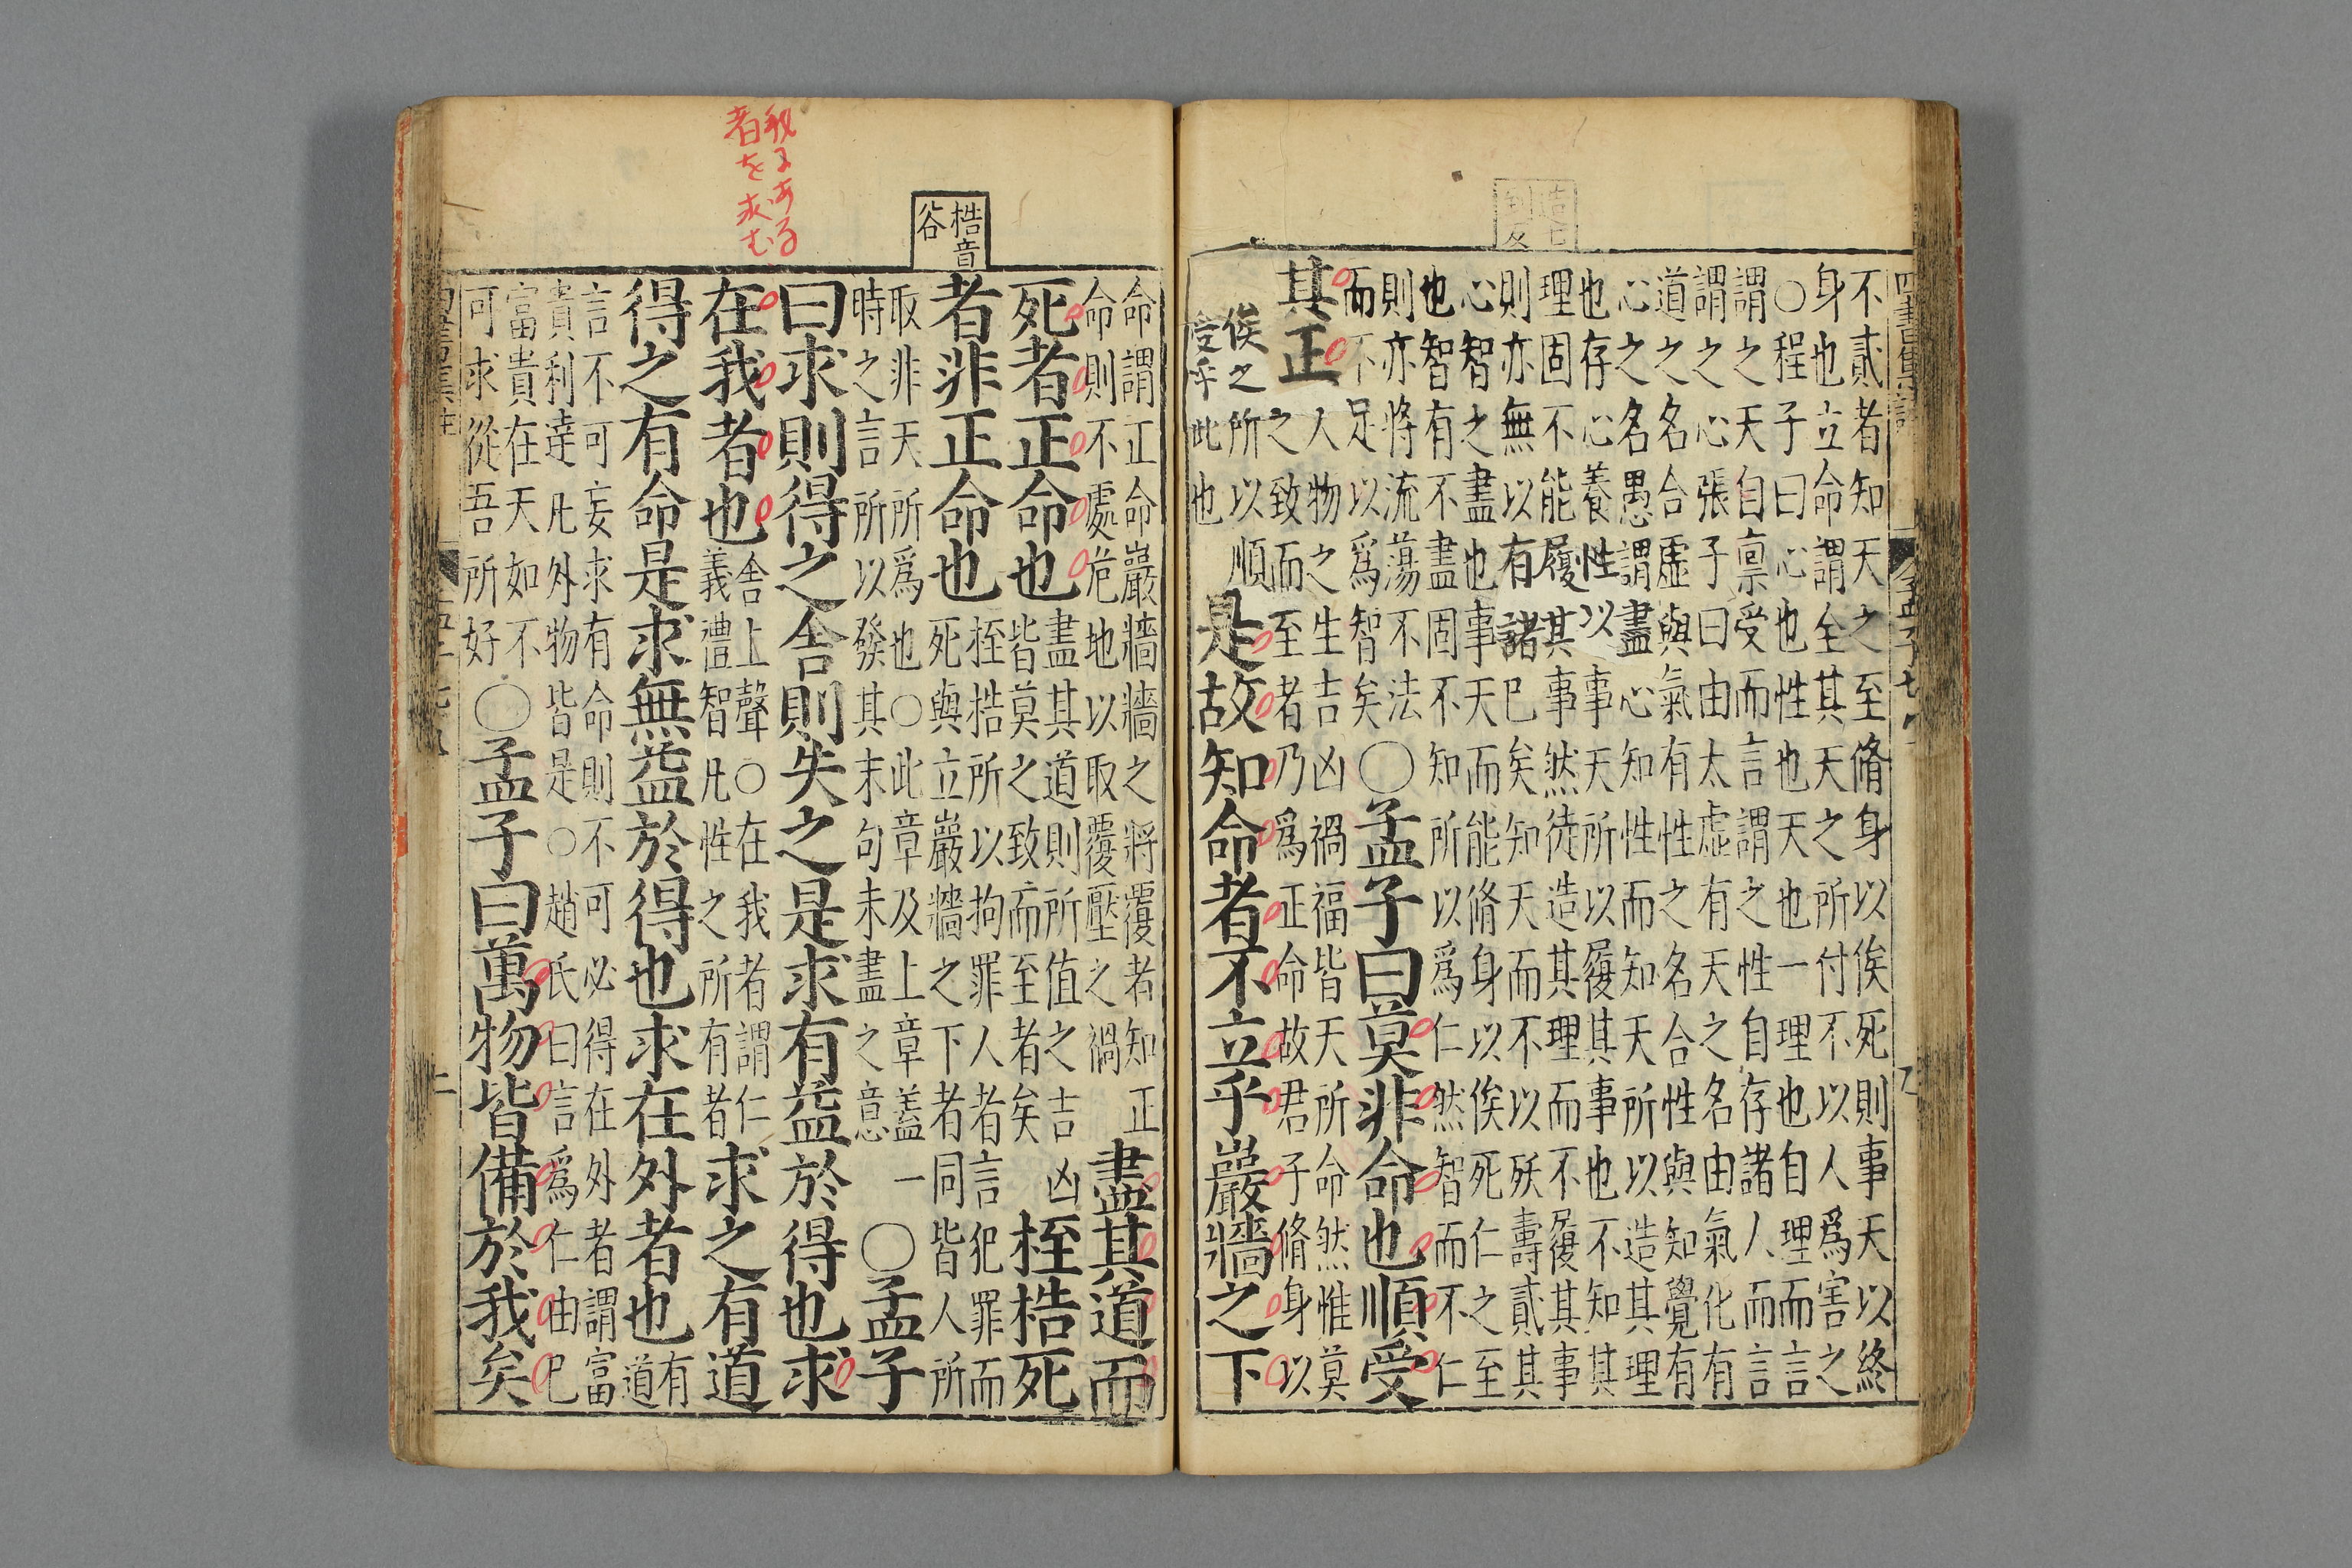 不貳者知天之至脩身以俟死則事天以終
身也立命謂全其天之所付不以人爲害之
○程子曰心也性也天也一理也自理而言
謂之天自稟受而言謂之性自存諸人而言
謂之心張子曰由太虛有天之名由氣化有
道之名合虛與氣有性之名合性與知覺有
心之名愚謂盡心知性而知天所以造其理
也存心養性以事天所以履其事也不知其
理固不能履其事然徒造其理而不履其事
則亦無以有諸已矣知天而不以殀壽貳其
心智之盡也事天而能脩身以俟死仁之至
也智有不盡固不知所以爲仁然智而不仁
則亦將流蕩不法
而不足以爲智矣
○孟子曰莫非命也順受
其正
人物之生吉凶禍福皆天所命然惟莫
之致而至者乃爲正命故君子脩身以
俟之所以順
受乎此也
是故知命者不立乎巖牆之下
命謂正命巖牆牆之將覆者知正
命則不處危地以取覆壓之禍
盡其道而
死者正命也
盡其道則所值之吉凶
皆莫之致而至者矣
桎梏死
梏音
谷
者非正命也
桎梏所以拘罪人者言犯罪而
死與立巖牆之下者同皆人所
取非天所爲也○此章及上章蓋一
時之言所以發其末句未盡之意
○孟子
曰求則得之舍則失之是求有益於得也求
我にある
者を求む
在我者也
舍上聲○在我者謂仁
義禮智凡性之所有者
求之有道
得之有命是求無益於得也求在外者也
有
道
言不可妄求有命則不可必得在外者謂富
貴利達凡外物皆是○趙氏曰言爲仁由已
富貴在天如不
可求從吾所好
○孟子曰萬物皆備於我矣